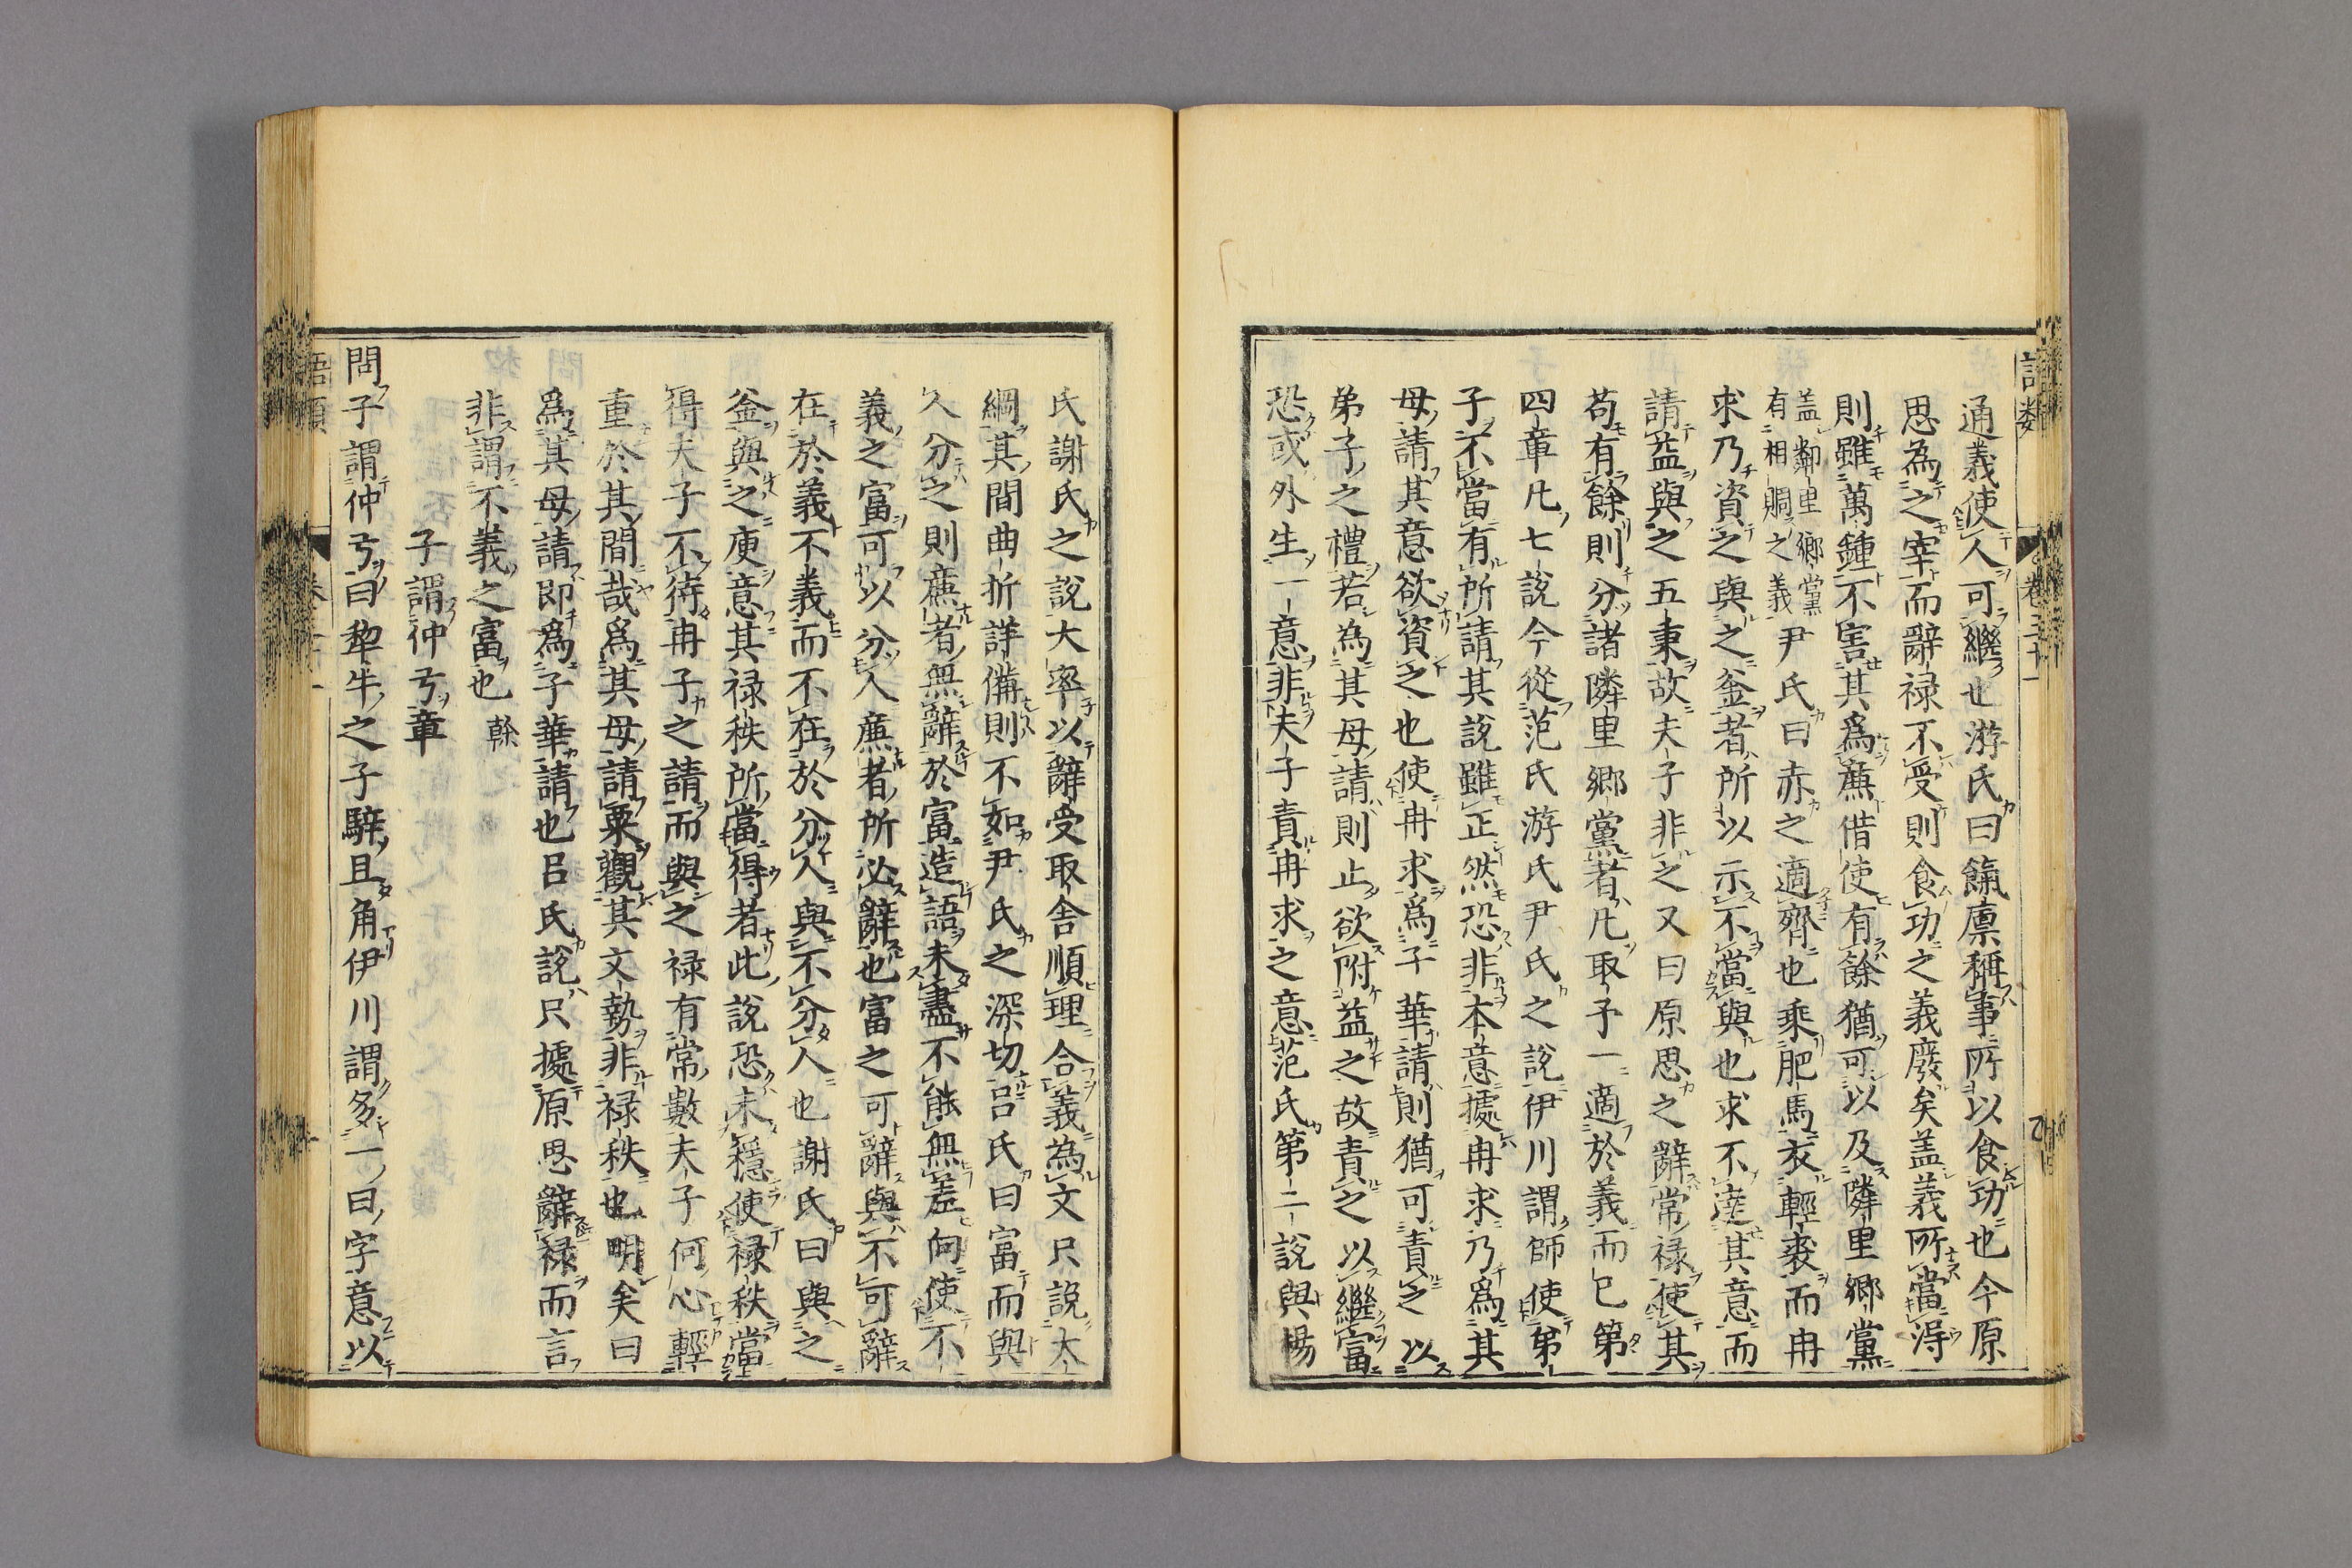 通義使人可繼也游氏曰餼廪稱事所以食功也今原
思為之宰而辭禄不受則食功之義廢矣盖義所當得
則雖萬鍾不害其爲廉借使有餘猶可以及隣里鄉黨
盖鄰里鄉黨
有相賙之義
尹氏曰赤之適齊也乘肥馬衣輕裘而冉
求乃資之與之釜者所以示不當與也求不達其意而
請益與之五秉故夫子非之又曰原思之辭常禄使其
苟有餘則分諸隣里鄉黨者凡取予一適於義而已第
四章凡七說今從范氏游氏尹氏之說伊川謂師使弟
子不當有所請其說雖正然恐非本意據冉求乃爲其
母請其意欲資之也使冉求爲子華請則猶可責之以
弟子之禮若為其母請則止欲附益之故責之以繼富
恐或外生一意非夫子責冉求之意范氏第二說與楊
氏謝氏之說大率以辭受取舍順理合義為文只說大
綱其間曲折詳備則不如尹氏之深切吕氏曰富而與
人分之則廉者無辭於富造語未盡不能無差向使不
義之富可以分人廉者所必辭也富之可辭與不可辭
在於義不義而不在於分人與不分人也謝氏曰與之
釜與之庾意其禄秩所當得者此說恐未穩使禄秩當
得夫子不待冉子之請而與之禄有常數夫子何心輕
重於其間哉爲其母請粟觀其文勢非禄秩也明矣曰
爲其母請即爲子華請也吕氏說只據原思辭禄而言
非謂不義之富也 榦
子謂仲弓章
問子謂仲弓曰犂牛之子騂且角伊川謂多一曰字意以